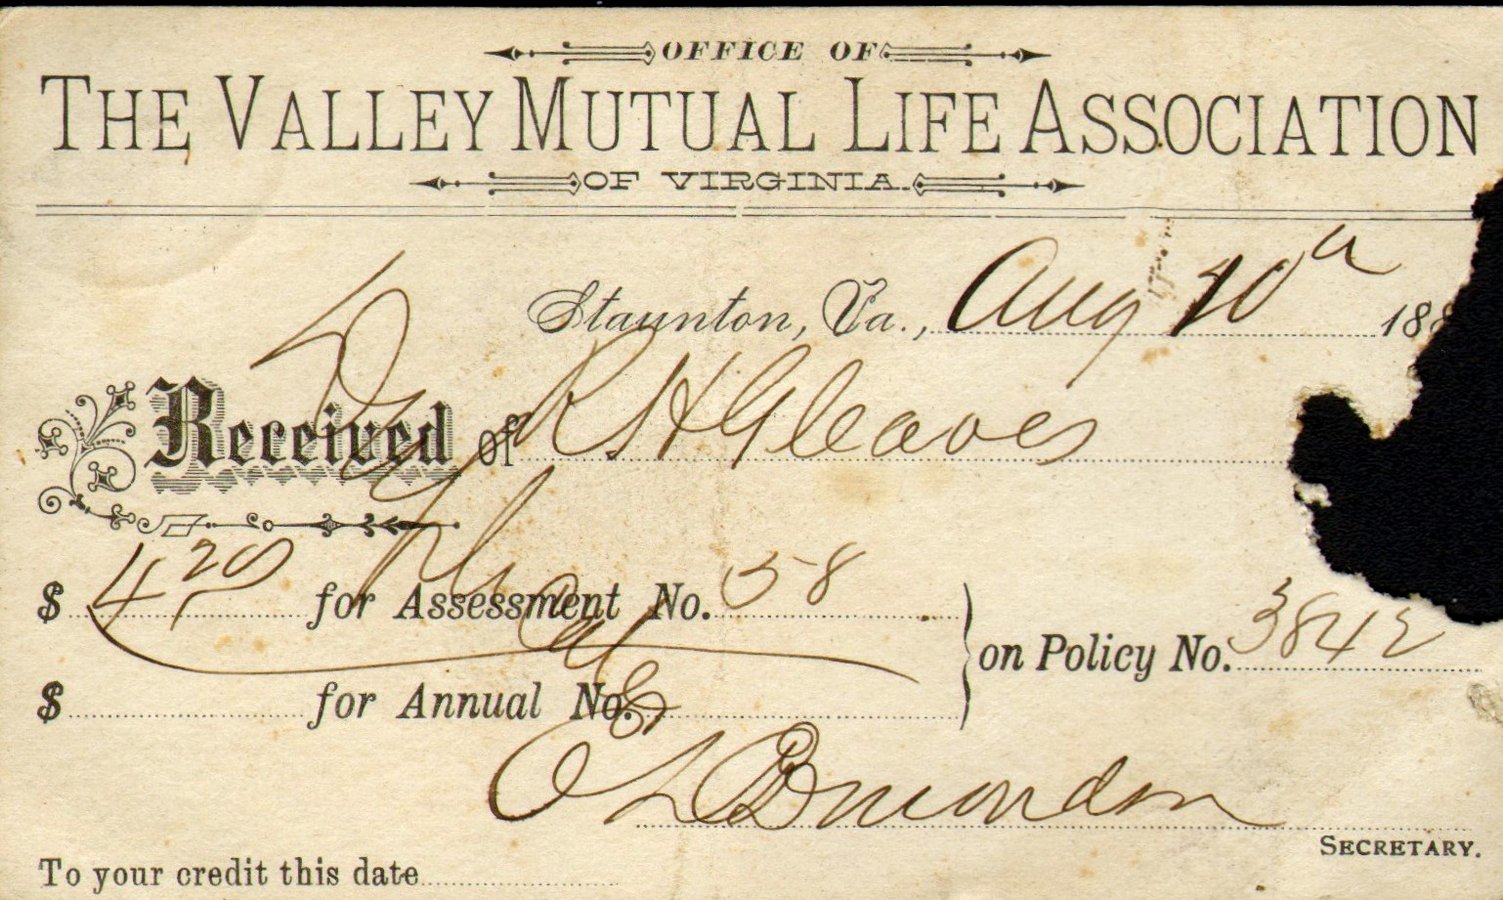 OFFICE OF
THE VALLEY MUTUAL LIFE ASSOCIATION
OF VIRGINIA.
Staunton, Va., Aug 188
Received of R H Gleaves
$ 4 20 for Assessment No. 58
on Policy No. 3842
$ for Annual No.
E L Edmondson
SECRETARY.
To your credit this date